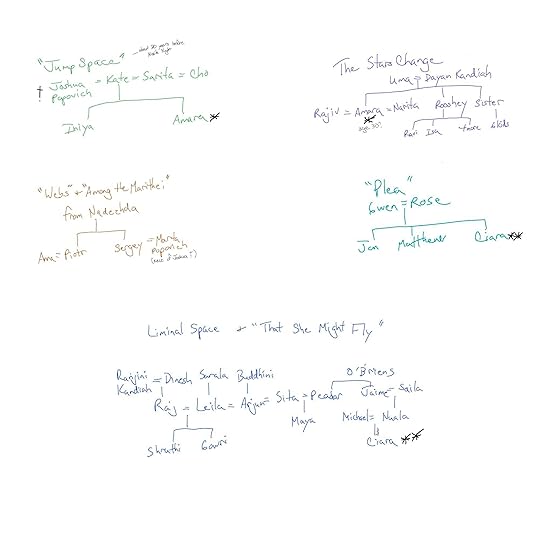 "Jump Space"
† Joshua Popovich = Kate = Sarita = Cho
Ihiya
Amara *
The Stars Change
Uma = Dayan Kandiah
Rajiv = Amara = Narita Rooshey Sister
*
Ravi Isa 4 more 6 kids
"Webs" + "Among the Marithei"
from Nadezhda
Ana = Piotr Sergey = Marta Popovich
"Plea"
Gwen = Rose
Jon Matthew Ciara **
Liminal Space + "That She Might Fly"
Ranjini Kandiah = Dinesh Sarala Buddhini O'Briens
Raj = Leila = Arjun = Sita = Peadar Jaime = Saila
Maya Michael = Nuala
Shruthi Gowri Ciara **